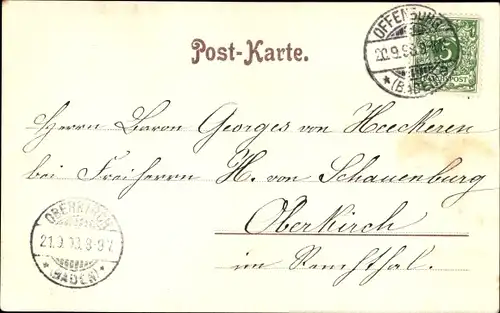 Post-Karte.
OFFENBURG
* (BADEN)
5
POST
Herrn Baron Georges von Heeckeren
bei Freiherrn H. von Schauenburg
Oberkirch
im Renchthal.
OBERKIRCH
* (BADEN) *